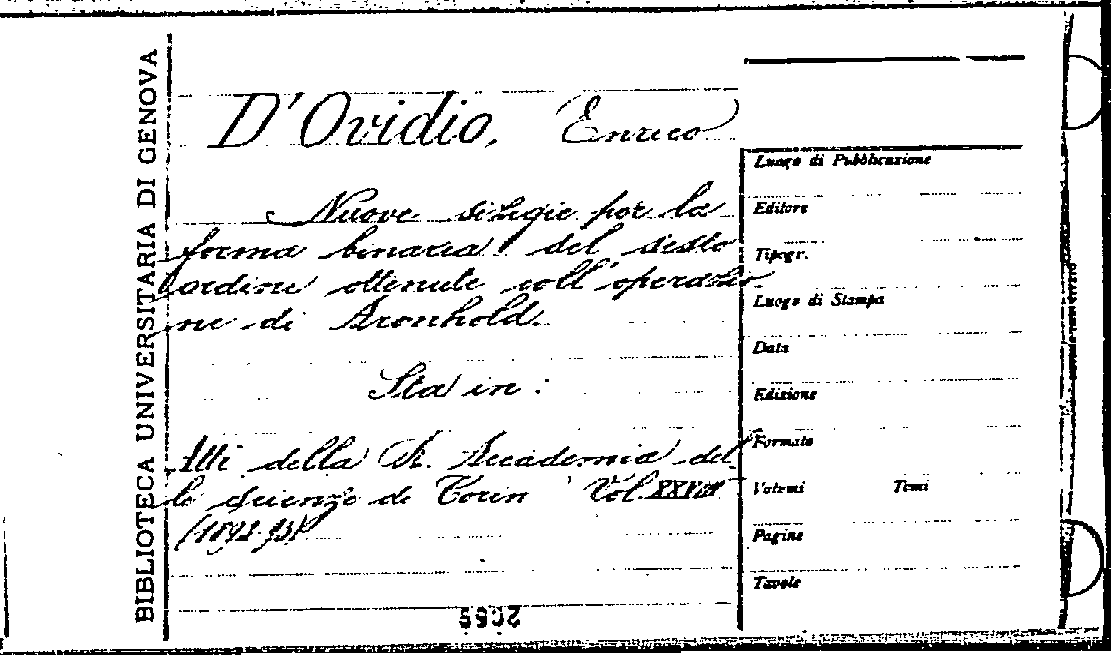 BIBLIOTECA UNIVERSITARIA DI GENOVA
D'Ovidio, Enrico
Nuove sizigie per la
forma binaria del sesto
ordine ottenute coll'operazio-
ne di Aronhold.
Sta in:
Atti della R. Accademia del-
le scienze di Torin Vol. XXVIII
(1892-93)
Luogo di Pubblicazione
Editore
Tipogr.
Luogo di Stampa
Data
Edizione
Formato
Volumi Tomi
Pagine
Tavole